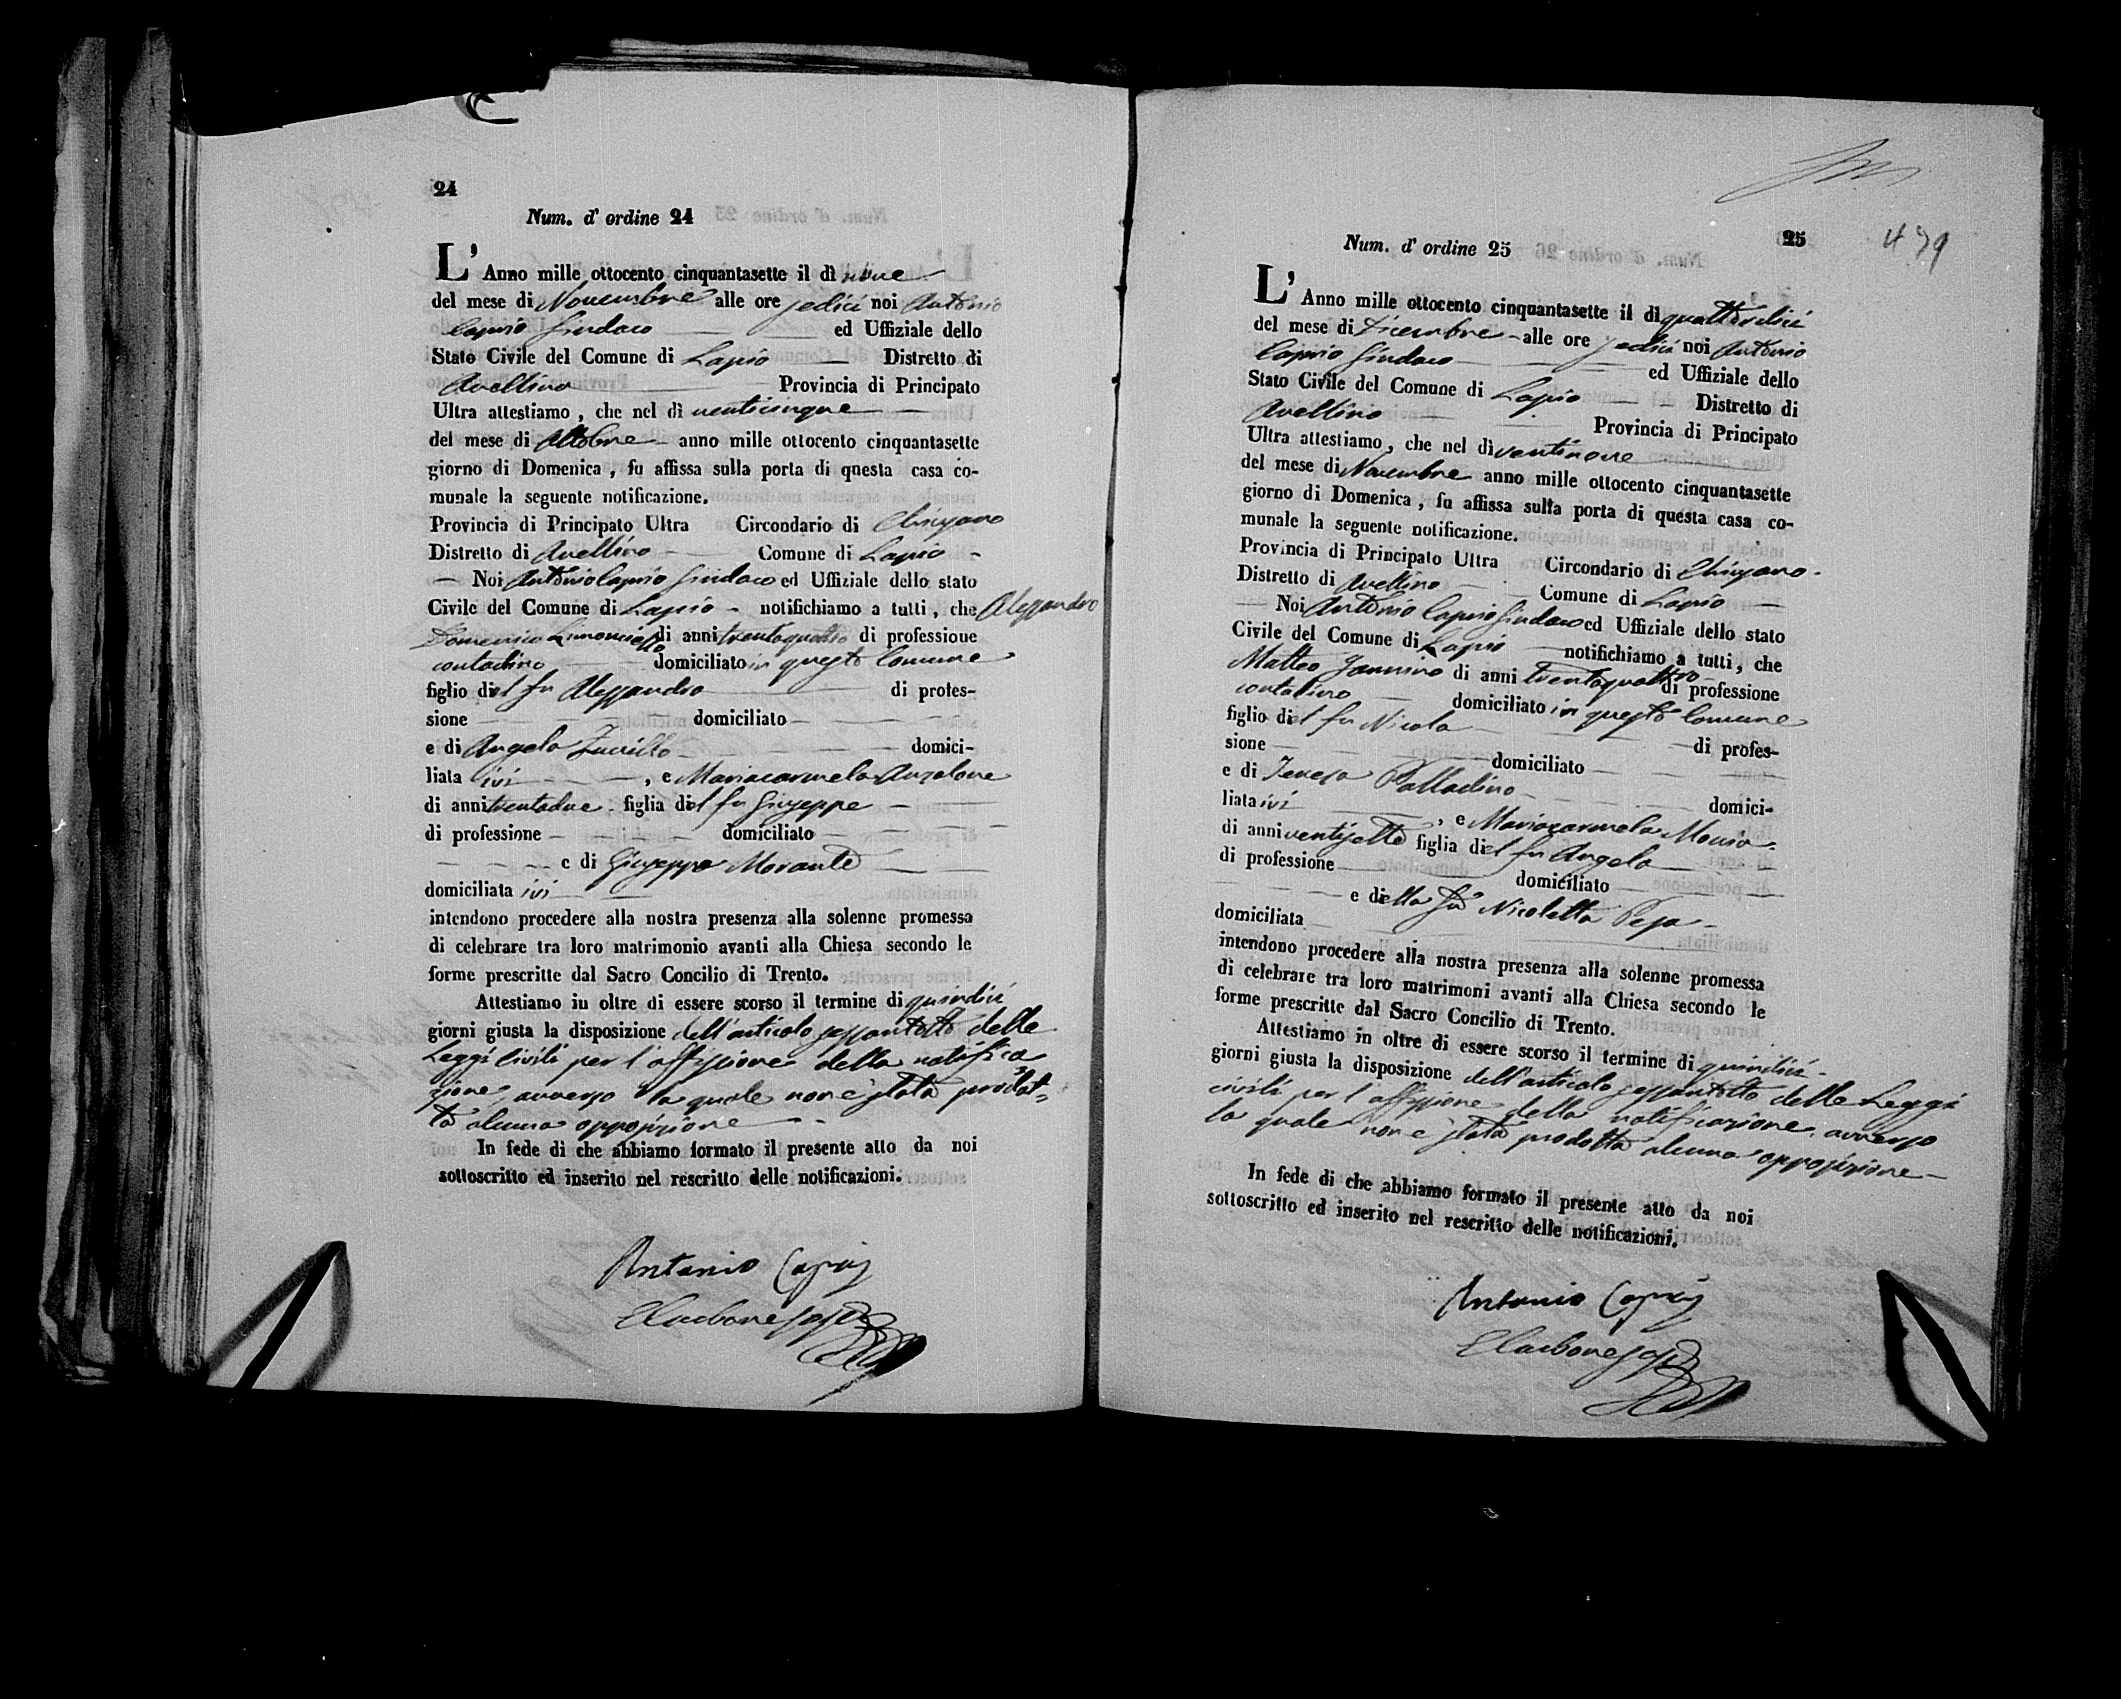 24
Num. d' ordine 24
L' Anno mille ottocento cinquantasette il dì nove
del mese di Novembre alle ore sedici noi Antonio
Caprio Sindaco ed Uffiziale dello
Stato Civile del Comune di Lapio Distretto di
Avellino Provincia di Principato
Ultra attestiamo, che nel dì venticinque
del mese di Ottobre anno mille ottocento cinquantasette
giorno di Domenica, fu affissa sulla porta di questa casa co-
munale la seguente notificazione.
Provincia di Principato Ultra Circondario di Chiusano
Distretto di Avellino Comune di Lapio
Noi Antonio Caprio Sindaco ed Uffiziale dello stato
Civile del Comune di Lapio notifichiamo a tutti, che Alessandro
Domenico Limonciello di anni trentaquattro di professione
contadino domiciliato in questo Comune
figlio del fu Alessandro di profes-
sione domiciliato
e di Angela domici-
liata ivi, e Mariacarmela Anzalone
di anni trentadue figlia del fu Giuseppe
di professione domiciliato
e di Giuseppa Morante
domiciliata ivi
intendono procedere alla nostra presenza alla solenne promessa
di celebrare tra loro matrimonio avanti alla Chiesa secondo le
forme prescritte dal Sacro Concilio di Trento.
Attestiamo in oltre di essere scorso il termine di quindici
giorni giusta la disposizione dell'articolo sessantotto delle
Leggi Civili per l'affissione della notifica
zione, avverso la quale non è stata prodot=
ta alcuna opposizione
In fede di che abbiamo formato il presente atto da noi
sottoscritto ed inserito nel rescritto delle notificazioni.
Antonio Caprio
Carbone
25
479
Num. d' ordine 25
L' Anno mille ottocento cinquantasette il dì quattordici
del mese di Dicembre alle ore sedici noi Antonio
Caprio Sindaco ed Uffiziale dello
Stato Civile del Comune di Lapio Distretto di
Avellino Provincia di Principato
Ultra attestiamo, che nel dì ventinove
del mese di Novembre anno mille ottocento cinquantasette
giorno di Domenica, fu affissa sulla porta di questa casa co-
munale la seguente notificazione.
Provincia di Principato Ultra Circondario di Chiusano
Distretto di Avellino Comune di Lapio
Noi Antonio Caprio Sindaco ed Uffiziale dello stato
Civile del Comune di Lapio notifichiamo a tutti, che
Matteo Jannino di anni trentaquattro di professione
contadino domiciliato in questo Comune
figlio del fu Nicola di profes-
sione domiciliato
e di Teresa Palladino domici-
liata ivi, e Mariacarmela
di anni ventisette figlia del fu Angelo
di professione domiciliato
e della fu Nicoletta Pepa
domiciliata
intendono procedere alla nostra presenza alla solenne promessa
di celebrare tra loro matrimoni avanti alla Chiesa secondo le
forme prescritte dal Sacro Concilio di Trento.
Attestiamo in oltre di essere scorso il termine di quindici
giorni giusta la disposizione dell'articolo sessantotto delle Leggi
civili per l'affissione della notificazione, avverso
la quale non è stata prodotta alcuna opposizione
In fede di che abbiamo formato il presente atto da noi
sottoscritto ed inserito nel rescritto delle notificazioni.
Antonio Caprio
Carbone